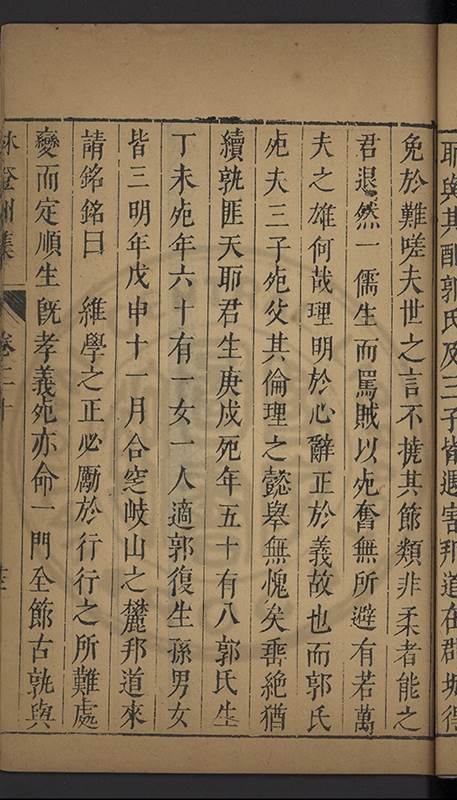 耶與其配郭氏及三子皆遇害邦道在郡城得
免於難嗟夫世之言不撓其節類非柔者能之
君退然一儒生而罵賊以死奮無所避有若萬
夫之雄何哉理明於心辭正於義故也而郭氏
死夫三子死父其倫理之懿舉無愧矣垂絶猶
續孰匪天耶君生庚戌死年五十有八郭氏生
丁未死年六十有一女一人適郭復生孫男女
皆三明年戊申十一月合窆岐山之麓邦道來
請銘銘曰　維學之正必勵於行行之所難處
變而定順生旣孝義死亦命一門全節古孰與
林登州集　卷二十